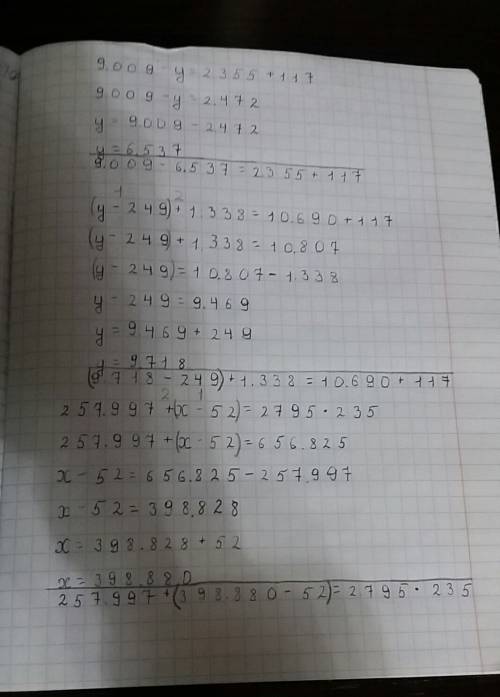 9.009 - y = 2355 + 117
9009 - y = 2.472
y = 9009 - 2472
y = 6.537
9.009 - 6.537 = 2355 + 117
1 2
(y - 249) + 1.338 = 10.690 + 117
(y - 249) + 1.338 = 10.807
(y - 249) = 10.807 - 1.338
y - 249 = 9.469
y = 9.469 + 249
y = 9.718
(9.718 - 249) + 1.338 = 10.690 + 117
2 1
257.997 + (x - 52) = 2795 · 235
257.997 + (x - 52) = 656.825
x - 52 = 656.825 - 257.997
x - 52 = 398.828
x = 398.828 + 52
x = 398.880
257.997 + (398.880 - 52) = 2795 · 235